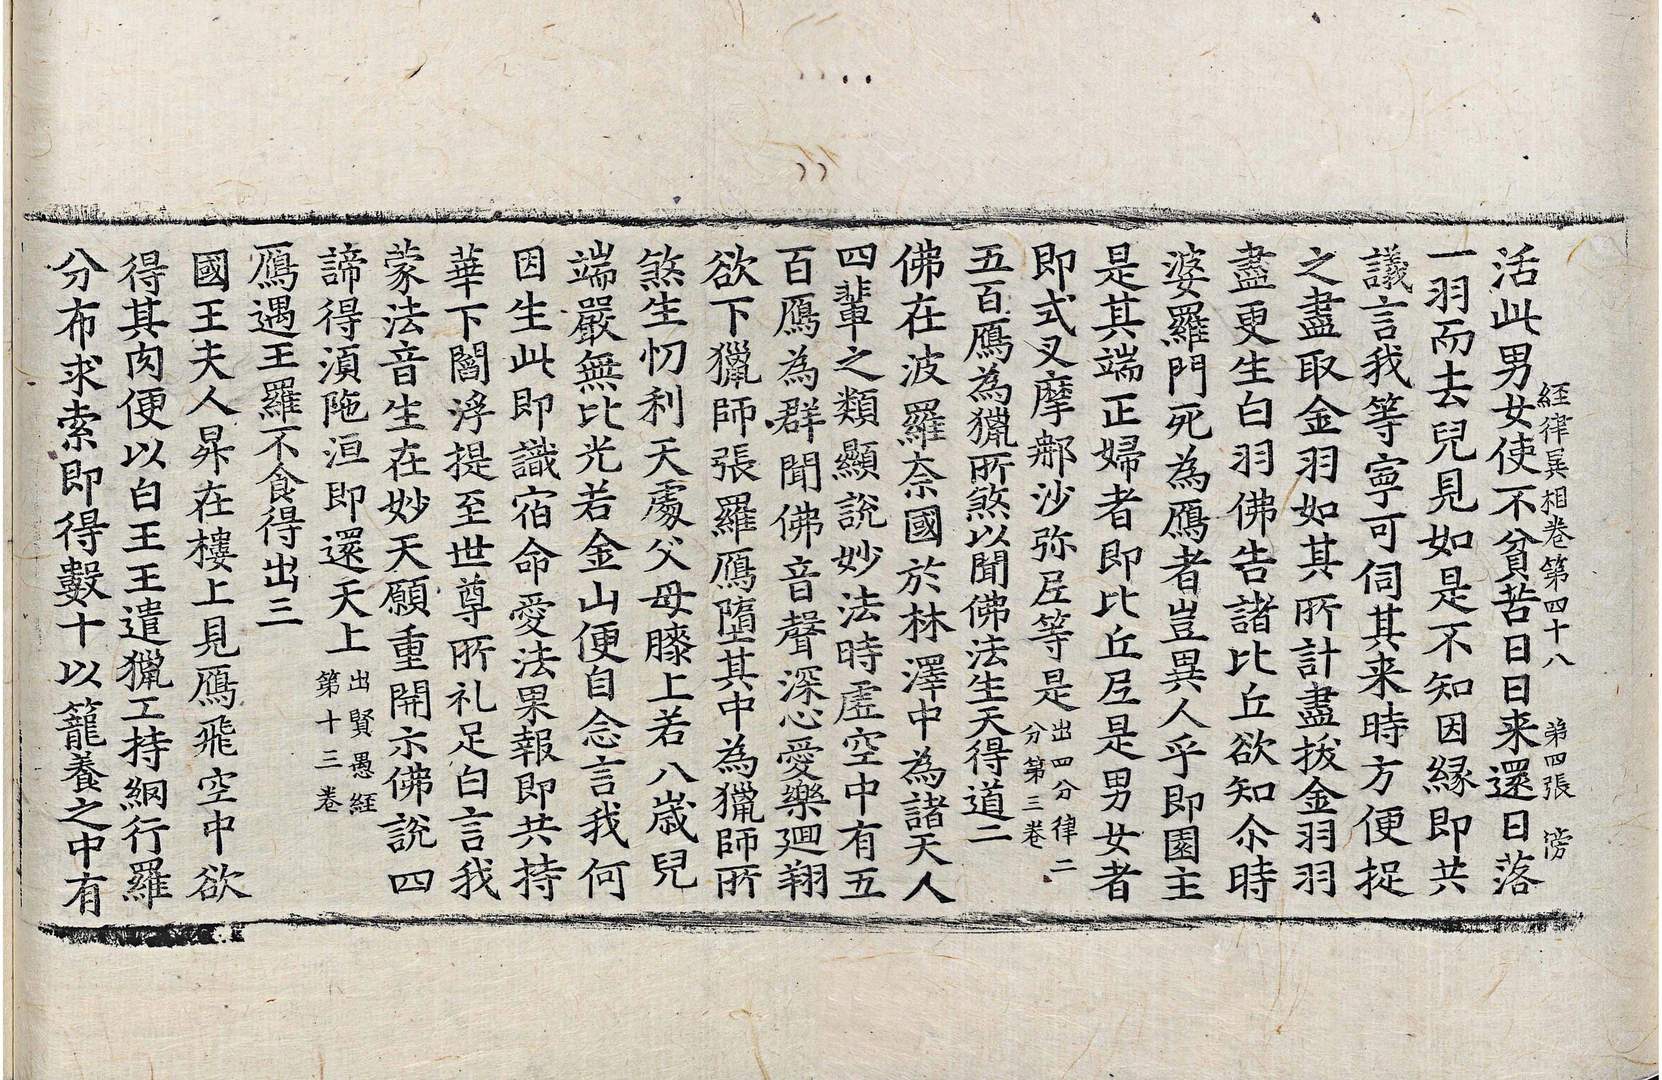 經律異相卷第四十八 第四張 滂
活此男女使不貧苦日日来還日落
一羽而去兒見如是不知因緣即共
議言我等寧可伺其来時方便捉
之盡取金羽如其所計盡拔金羽羽
盡更生白羽佛告諸比丘欲知尒時
婆羅門死為鴈者豈異人乎即園主
是其端正婦者即比丘𡰱是男女者
即式叉摩𨚗沙弥𡰱等是出四分律二分第三卷
五百鴈為獵所煞以聞佛法生天得道二
佛在波羅奈國於林澤中為諸天人
四輩之類顯說妙法時虛空中有五
百鴈為群聞佛音聲深心愛樂迴翔
欲下獵師張羅鴈墮其中為獵師所
煞生忉利天處父母膝上若八歲兒
端嚴無比光若金山便自念言我何
因生此即識宿命愛法果報即共持
華下閻浮提至世尊所礼足白言我
蒙法音生在妙天願重開示佛說四
諦得湏陁洹即還天上出賢愚經第十三卷
鴈遇王羅不食得出三
國王夫人昇在樓上見鴈飛空中欲
得其肉便以白王王遣獵工持網行羅
分布求索即得數十以籠養之中有